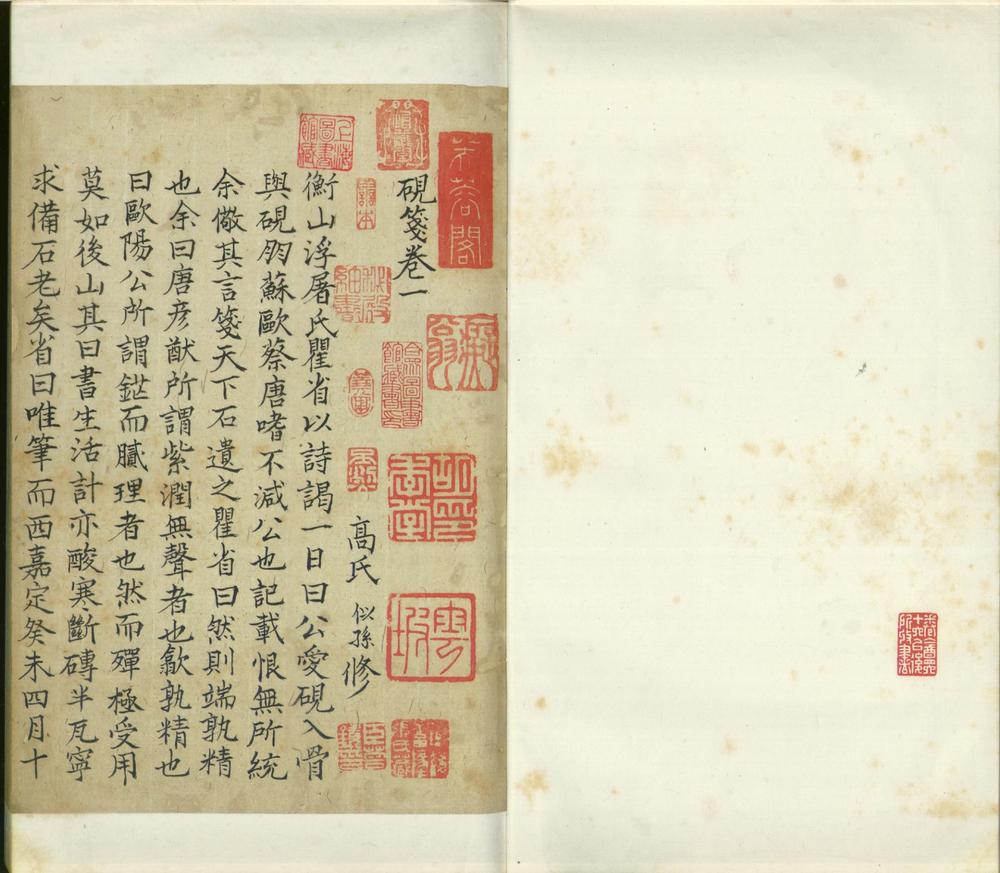 硯箋卷一
高氏 似孫 修
衡山浮屠氏瞿省以詩謁一日曰公愛硯入骨
與硯朋蘇歐蔡唐嗜不減公也記載恨無所統
余儆其言箋天下石遺之瞿省曰然則端孰精
也余曰唐彦猷所謂紫潤無聲者也歙孰精也
曰歐陽公所謂鋩而膩理者也然而殫極受用
莫如後山其曰書生活計亦酸寒斷磚半瓦寧
求備石老矣省曰唯筆而西嘉定癸未四月十
上海圖書館藏
善本